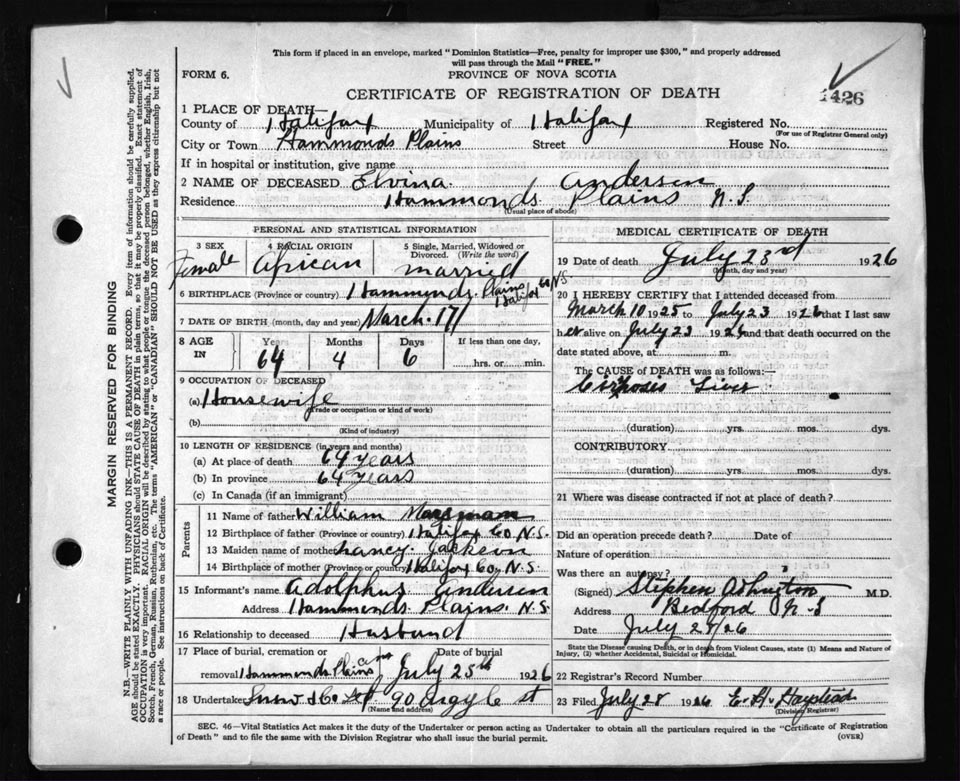 This form if placed in an envelope, marked "Dominion Statistics—Free, penalty for improper use $300," and properly addressed
will pass through the Mail "FREE."
FORM 6.
PROVINCE OF NOVA SCOTIA
CERTIFICATE OF REGISTRATION OF DEATH
1426
1 PLACE OF DEATH—
County of Halifax Municipality of Halifax Registered No.
(For use of Registrar General only)
City or Town Hammonds Plains Street House No.
If in hospital or institution, give name
2 NAME OF DECEASED Elvina Anderson
Residence Hammonds Plains N.S.
(Usual place of abode)
PERSONAL AND STATISTICAL INFORMATION
3 SEX 4 RACIAL ORIGIN 5 Single, Married, Widowed or
Divorced. (Write the word)
Female African married
6 BIRTHPLACE (Province or country) Hammonds Plains Halifax Co N.S.
7 DATE OF BIRTH (month, day and year) March 17
8 AGE IN Years Months Days If less than one day,
64 4 6 hrs. or min.
9 OCCUPATION OF DECEASED
(a) Housewife
(Trade or occupation or kind of work)
(b)
(Kind of industry)
10 LENGTH OF RESIDENCE (in years and months)
(a) At place of death 64 years
(b) In province 64 years
(c) In Canada (if an immigrant)
Parents
11 Name of father William
12 Birthplace of father (Province or country) Halifax Co N.S.
13 Maiden name of mother Nancy Jackson
14 Birthplace of mother (Province or country) Halifax Co N.S.
15 Informant's name Adolphus Anderson
Address Hammonds Plains N.S.
16 Relationship to deceased Husband
17 Place of burial, cremation or Date of burial
removal Hammonds Plains Cem July 25th 1926
18 Undertaker Snow & Co Ltd 90 Argyle st
(Name and address)
MEDICAL CERTIFICATE OF DEATH
19 Date of death July 23rd 1926
(Month, day and year)
20 I HEREBY CERTIFY that I attended deceased from
March 10 1925 to July 23 1926 that I last saw
her alive on July 23 1926, and that death occurred on the
date stated above, at m.
The CAUSE of DEATH was as follows:—
Cirrhosis Liver
(duration) yrs. mos. dys.
CONTRIBUTORY
(duration) yrs. mos. dys.
21 Where was disease contracted if not at place of death?
Did an operation precede death? Date of
Nature of operation
Was there an autopsy?
(Signed) Stephen Ashington M.D.
Address Bedford N.S
Date July 25/26
State the Disease causing Death, or in death from Violent Causes, state (1) Means and Nature of
Injury, (2) whether Accidental, Suicidal or Homicidal.
22 Record Number
23 Filed July 28 1926 E. H.
(Division Registrar)
SEC. 46—Vital Statistics Act makes it the duty of the Undertaker or person acting as Undertaker to obtain all the particulars required in the "Certificate of Registration
of Death" and to file the same with the Division Registrar who shall issue the burial permit.
(OVER)
MARGIN RESERVED FOR BINDING
N.B.—WRITE PLAINLY WITH UNFADING INK—THIS IS A PERMANENT RECORD. Every item of information should be carefully supplied.
AGE should be stated EXACTLY. PHYSICIANS should STATE CAUSE OF DEATH in plain terms, so that it may be properly classified. Exact statement of
OCCUPATION is very important. RACIAL ORIGIN will be described by stating to what people or tongue the deceased person belonged, whether English, Irish,
Scotch, French, German, Russian, Ruthenian, etc. The terms "AMERICAN" or "CANADIAN" SHOULD NOT BE USED as they express citizenship but not
a race or people. See instructions on back of Certificate.